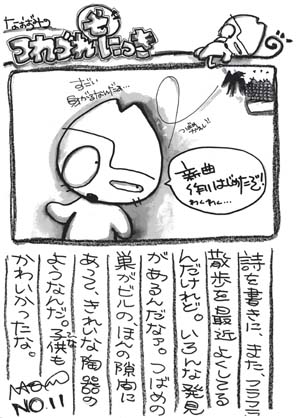 つれづれ
にっき
すごい
身がるなんだよ…
つばめ
かえし!
新曲
作りはじめたぞ!!
わくわく…
詩を書きに、また、
散歩を最近よくしてる
んだけれど。いろんな発見
があるんだなァ。つばめの
巣がビルのほんの隙間に
あって、きれいな陶器の
ようなんだ。子供も
かわいかったな。
NO.11